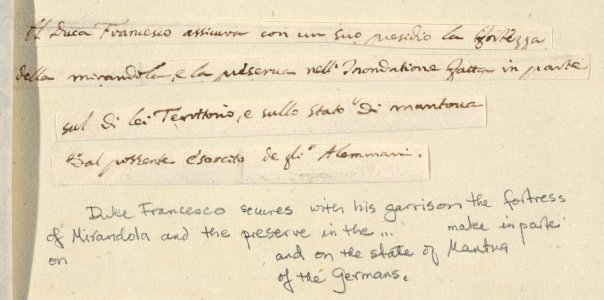 Il Duca Francesco assicura con un suo presidio la Fortezza
della mirandola, e la preserva nell'Inondatione fatta in parte
sul di lei Territorio, e sullo stato di mantova
dal possente esercito de gli Alemmani.
Duke Francesco secures with his garrison the fortress
of Mirandola and the preserve in the ... make in parte
on and on the state of Mantua
of the Germans.